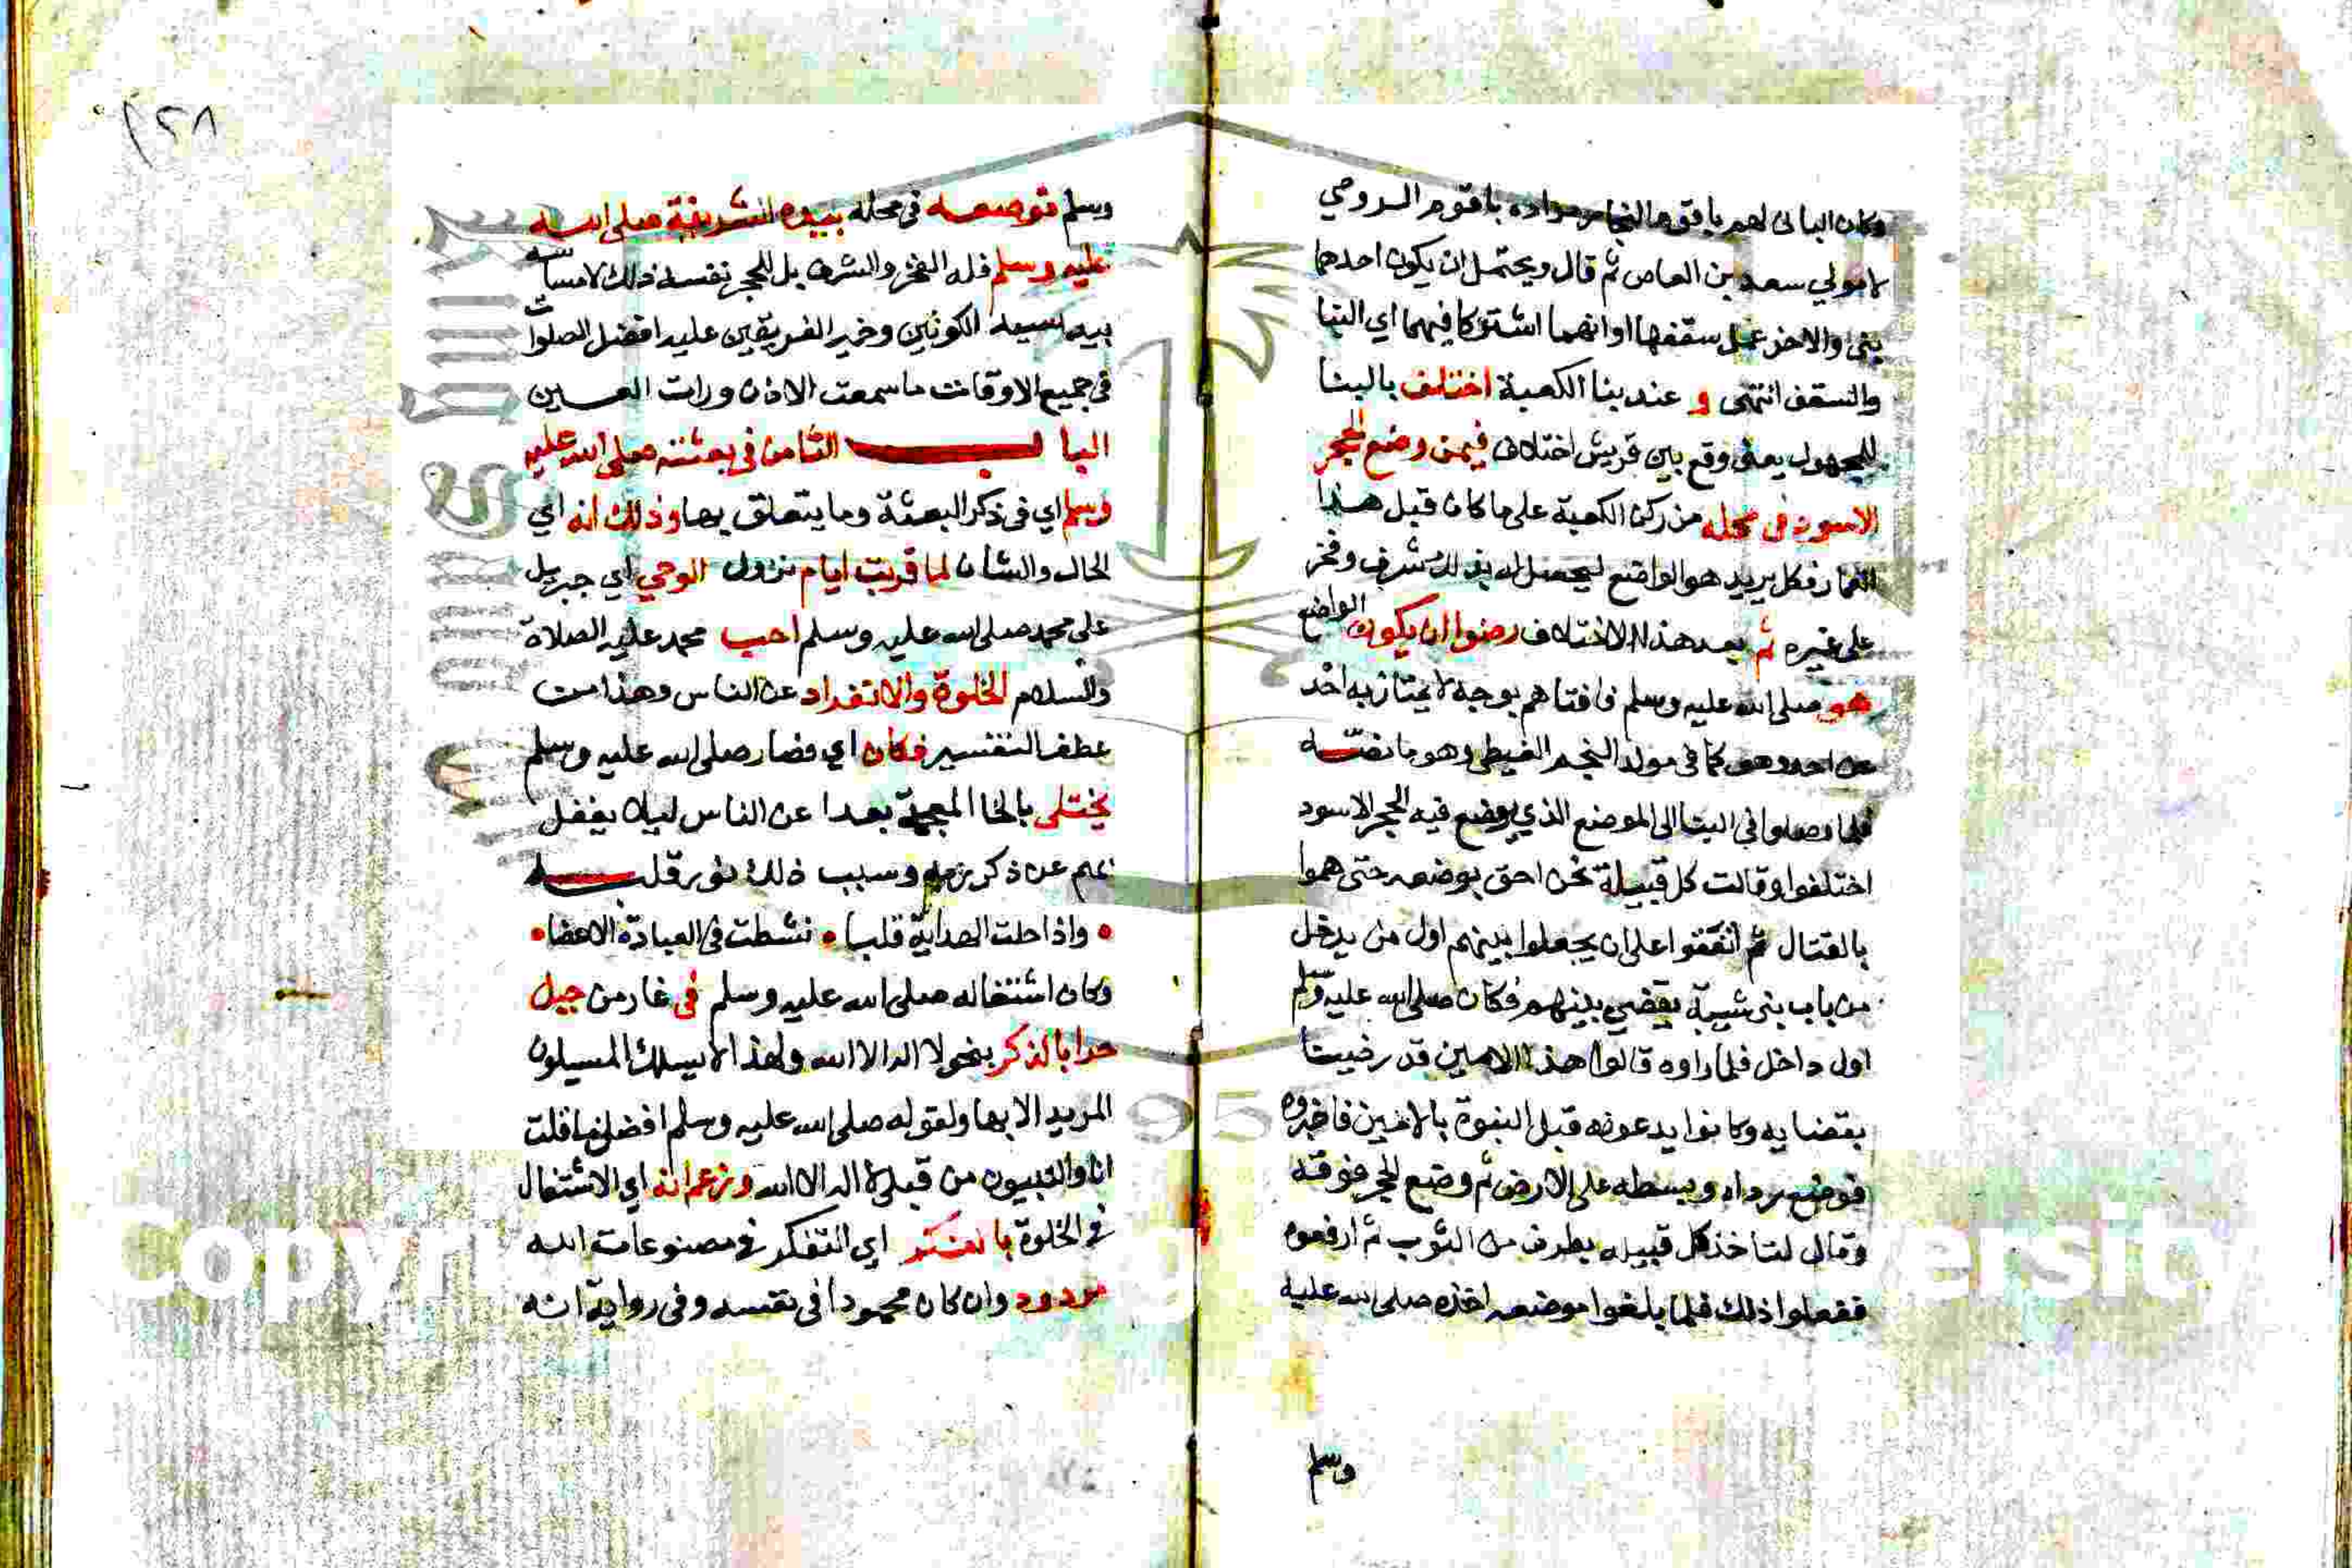 وكان الباني لهم باقوم النجار مراده باقوم الرومي
لامولي سعد بن العاص ثم قال ويحتمل ان يكون احدهما
بنى والاخر عمل سقفها او انهما اشتركا فيهما اي البنا
والسقف انتهى و عند بنا الكعبة اختلف بالبنا
للمجهول يعنى وقع بين قريش اختلاف فيمن وضع الحجر
الاسود في محله من ركن الكعبة على ما كان قبل هذا
فكل يريد هو الواضع ليحصل له بذلك شرف وفخر
على غيره ثم بعد هذا الاختلاف رضوا ان يكون الواضع
هو صلى الله عليه وسلم فافتاهم بوجه لا يمتاز به احد
عن احد وهو كما في مولد النجم الغيطي وهو ما نصه
فلما وصلوا في البنا الى الموضع الذي يوضع فيه الحجر الاسود
اختلفوا وقالت كل قبيلة نحن احق بوضعه حتى هموا
بالقتال ثم اتفقوا على ان يجعلوا بينهم اول من يدخل
من باب بنى شيبة يقضي بينهم فكان صلى الله عليه وسلم
اول داخل فلما راوه قالوا هذا الامين قد رضينا
بقضايه وكانوا يدعونه قبل النبوة بالامين فاخبروه
فوضع رداه وبسطه على الارض ثم وضع الحجر فوقه
وقال لتاخذ كل قبيله بطرف من الثوب ثم ارفعوه
ففعلوا ذلك فلما بلغوا موضعه اخذه صلى الله عليه
وسلم
١٢٨
وسلم فوضعه في محله بيده الشريفة صلى الله
عليه وسلم فله الفخر والشرف بل للحجر نفسه ذلك لامساسه
بيد سيد الكونين وخير الفريقين عليه افضل الصلوات
في جميع الاوقات ما سمعت الاذن ورات العين
الباب الثامن في بعثته صلى الله عليه
وسلم اي في ذكر البعثة وما يتعلق بها وذلك انه اي
الحال والشان لما قربت ايام نزول الوحي اي جبريل
على محمد صلى الله عليه وسلم احب محمد عليه الصلاة
والسلام الخلوة والانفراد عن الناس وهذا من
عطف التفسير فكان اي فصار صلى الله عليه وسلم
يختلى بالخا المعجمة بعدا عن الناس ليلا يغفل
عن ذكر ربه وسبب ذلك نور قلبه
• واذا حلت الهداية قلبا • نشطت في العبادة الاعضا •
وكان اشتغاله صلى الله عليه وسلم في غار من جبل
حرا بالذكر بنحو لا اله الا الله ولهذا لا يسلك المسلكون
المريد الا بها ولقوله صلى الله عليه وسلم افضل ما قلت
انا والنبيون من قبلي لا اله الا الله وزعم انه اي الاشتغال
في الخلوة بالفكر اي التفكر في مصنوعات الله
مردود وان كان محمودا في نفسه وفى رواية انه